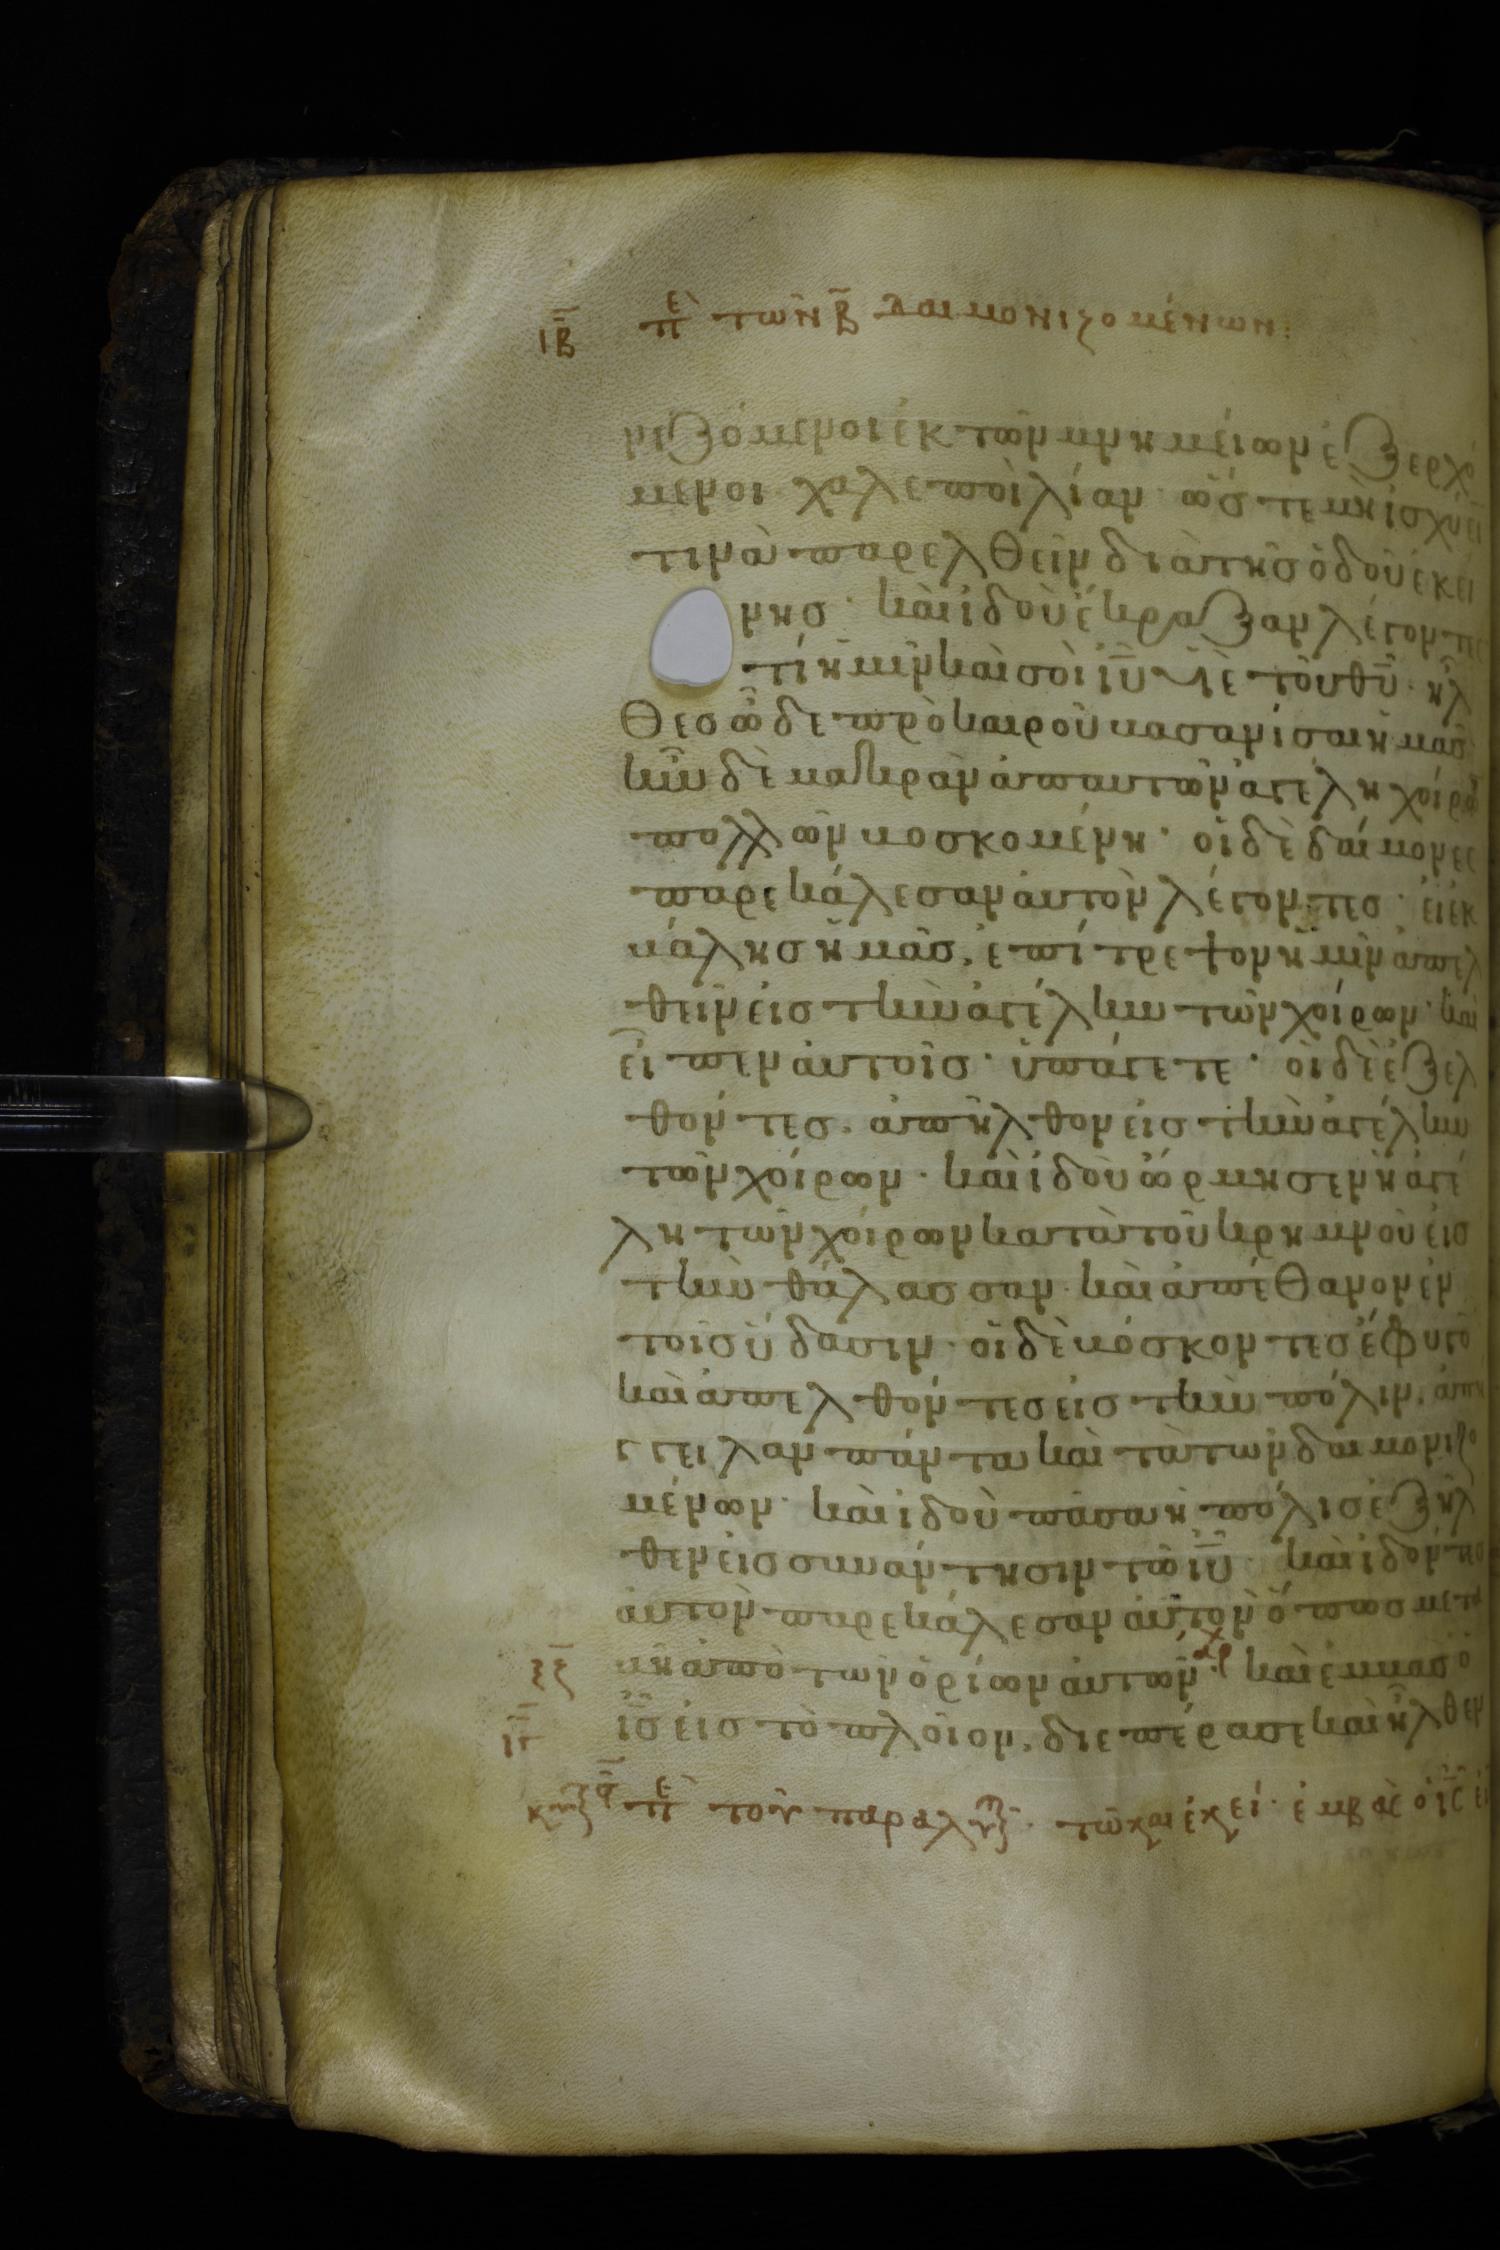 ιβ πε τῶν β δαιμονιζομένων:
νιζόμενοι ἐκ τῶν μνημείων ἐξερχό
μενοι χαλεποὶ λίαν· ὥστε μὴ ἰσχύειν
τινὰ παρελθεῖν διὰ τῆς ὁδοῦ ἐκεί
νης· καὶ ἰδοὺ ἔκραξαν λέγοντες
τί ἡμῖν καὶ σοὶ ιυ υἱὲ τοῦ θυ· ἦλ
θες ὧδε πρὸ καιροῦ βασανίσαι ἡμᾶς
ἦν δὲ μακρὰν ἀπ αυτῶν ἀγέλη χοίρων
πολλῶν βοσκομένη· οἱ δὲ δαίμονες
παρεκάλεσαν ἀυτὸν λέγοντες· ἐι ἐκ
βάλης ἡμᾶς, ἐπίτρεψον ἡμῖν ἀπελ
θεῖν ἐις τὴν ἀγέλην τῶν χοίρων· καὶ
εἶπεν ἀυτοῖς· ὑπάγετε· ὁι δὲ ἐξελ
θόντες· ἀπῆλθον ἐις τὴν ἀγέλην
τῶν χοίρων· καὶ ἰδοὺ ὥρμησεν ἡ ἀγέ
λη τῶν χοίρων κατὰ τοῦ κρημνοῦ ἐις
τὴν θάλασσαν· καὶ ἀπέθανον ἐν
τοῖς ὕδασιν· οἱ δὲ βόσκοντες ἔφυγον
καὶ ἀπελθόντες ἐις τὴν πόλιν, ἀπή
γγειλαν πάντα καὶ τὰ τῶν δαιμονιζο
μένων· καὶ ἰδοὺ πᾶσα ἡ πόλις ἐξῆλ
θεν ἐις συναντησιν τῶ ιυ· καὶ ἰδόντες
ἀυτὸν παρεκάλεσαν ἀυτὸν ὅπως μετα
ξξ βῆ ἀπὸ τῶν ὁρίων ἀυτῶν· αρχ καὶ ἐμβὰς ὁ
ιγ ις ἐις τὸ πλοῖον, διεπέρασε καὶ ἦλθεν
πε τοῦ παραλυ τῶ και ἐκεί· ἐμβὰς ὁ ις εἰ